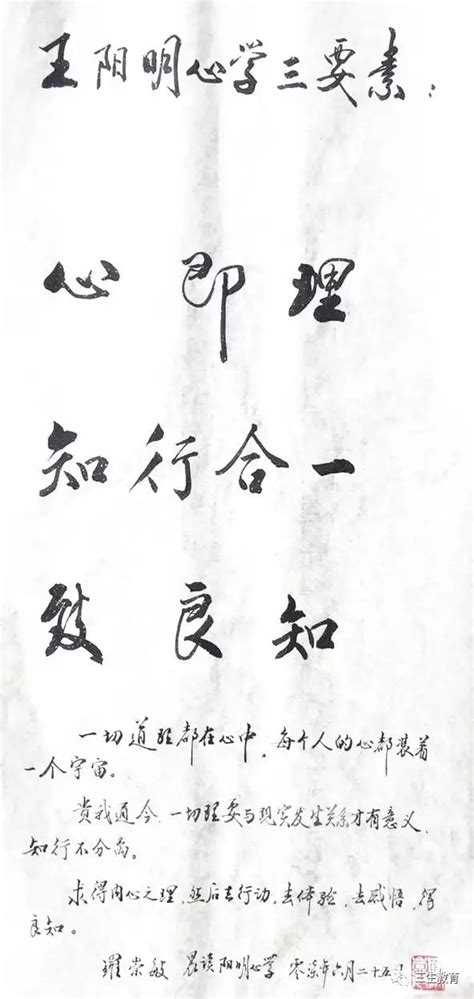 王阳明心学三要素：
心即理
知行合一
致良知
一切道理都在心中，每个人的心都装着
一个宇宙。
贵我通今，一切理要与现实发生关系才有意义，
知行不分离。
求得内心之理，然后去行动，去体验，去感悟，得
良知。
罗崇敏 晨读阳明心学 零柒年六月二十五日
三生教育